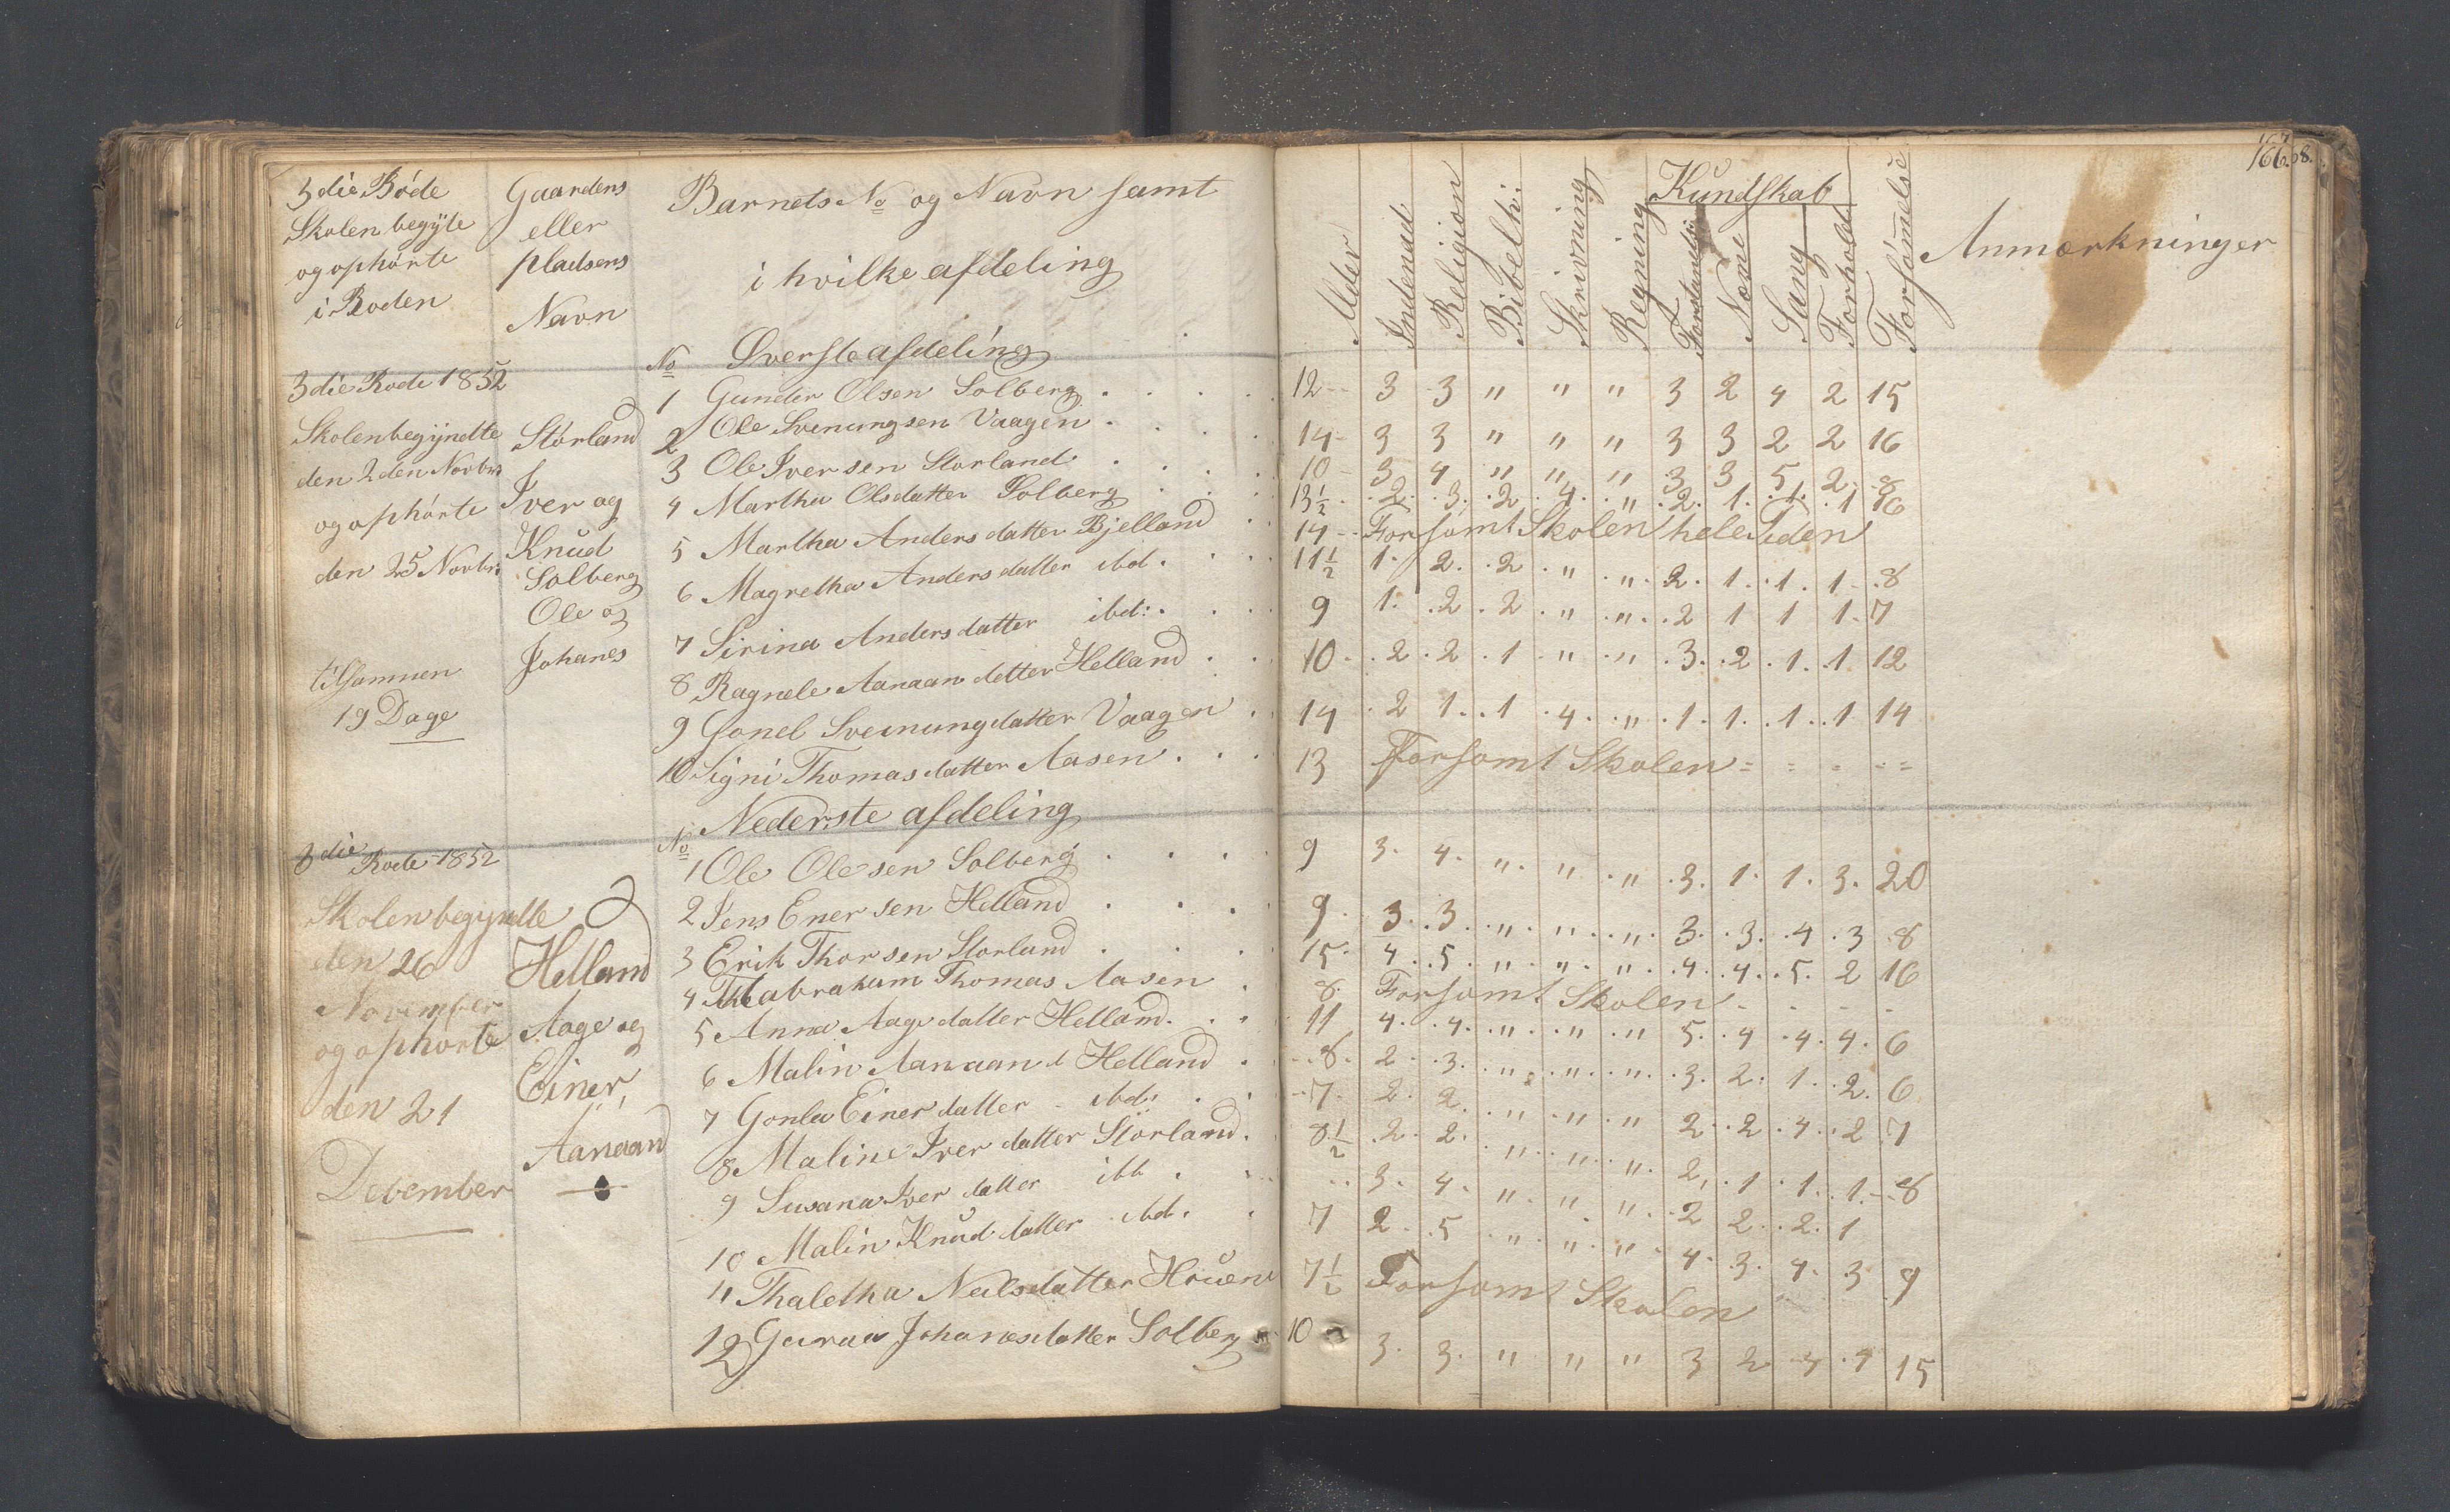 3die Rode
Skolen begyte
og ophörte
i Roden
Gaardens
eller
pladsens
Navn
Barnets No og Navn samt
i hvilke afdeling
Øverste afdeling
3die Rode 1852
Skolen begyndte
den 2den Novbr
og ophörte
den 25 Novbr:
tilsammen
19 Dage
Störland
Iver og
Knud
Solberg
Ole og
Johanes
No
1 Gunder Olsen Solberg
2 Ole Sveinungsen Vaagen
3 Ole Iversen Storland
4 Martha Olsdatter Solberg
5 Martha Andersdatter Bjelland
6 Magretha Andersdatter ibd.
7 Sirina Andersdatter ibd:
8 Ragnele Aanaandetter Helland
9 Gonel Sveinungdatter Vaagen
10 Signi Thomasdatter Aasen
Nederste afdeling
3die Rode 1852
Skolen begyndte
den 26
November
og ophörte
den 21
December
Helland
Aage og
Einer,
Aanaan
No
1 Ole Olesen Solberg
2 Jens Enersen Helland
3 Erik Thorsen Storland
4 abraham Thomas Aasen
5 Anna Aagedatter Helland
6 Malin Aanaan d Helland
7 Gonla Einerdatter ibd:
8 Maline Iverdatter Störland
9 Susana Iverdatter ibd
10 Malin Knuddatter ibd.
11 Thaletha Neilsdatter
12 Guraa Johanesdatter Solberg
167
166 68.
Alder
Indenad
Religion
Bibelh:
Skrivning
Regning
Kundskab
Forstandsö:
Neme
Sang
Forhold
Forsömmelse
Anmærkninger
12 3 3 " " " 3 2 4 2 15
14 3 3 " " " 3 3 2 2 16
10 3 4 " " " 3 3 5 2 8
13½ 2 3 2 4 " 2 1 1 1 16
14 Forsömt Skolen hele Tiden
11½ 1 2 2 " " 2 1 1 1 8
9 1 2 2 " " 2 1 1 1 7
10 2 2 1 " " 3 2 1 1 12
14 2 1 1 4 " 1 1 1 1 14
13 Forsömt Skolen = = = = =
9 3 4 " " " 3 1 1 3 20
9 3 3 " " " 3 3 4 3 8
15 4 5 " " " 4 4 5 2 16
8 Forsömt Skolen - - - -
11 4 4 " " " 5 4 4 4 6
8 2 3 " " " 3 2 1 2 6
7 2 2 " " " 2 2 4 2 7
8½ 2 2 " " " 2 1 1 1 8
3 4 " " " 2 2 2 1
7 2 5 " " " 4 3 4 3 9
7½ Forsömt Skolen
10 3 3 " " " 3 2 4 4 15